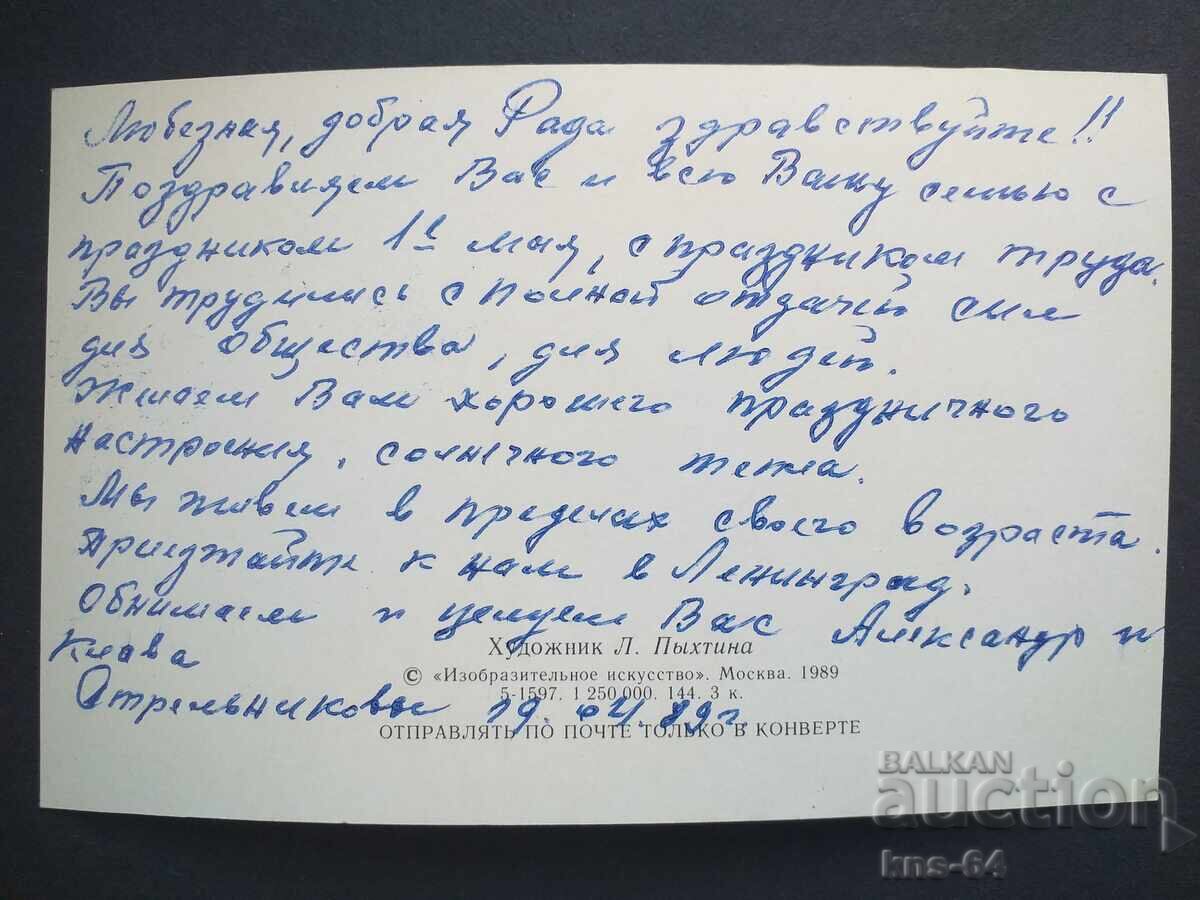 Любезная, добрая Рада здравствуйте!!
Поздравляем Вас и всю Вашу семью с
праздником 1е мая, с праздником труда.
Вы трудились с полной отдачей сил
для общества, для людей.
Желаем Вам хорошего праздничного
настроения, солнечного тепла.
Мы живем в пределах своего возраста.
Приезжайте к нам в Ленинград.
Обнимаем и целуем Вас Александр и
Клава
Художник Л. Пыхтина
© «Изобразительное искусство». Москва. 1989
5-1597. 1 250 000. 144. 3 к.
Стрельниковы 19.04.89г.
ОТПРАВЛЯТЬ ПО ПОЧТЕ ТОЛЬКО В КОНВЕРТЕ
BALKAN
auction
kns-64